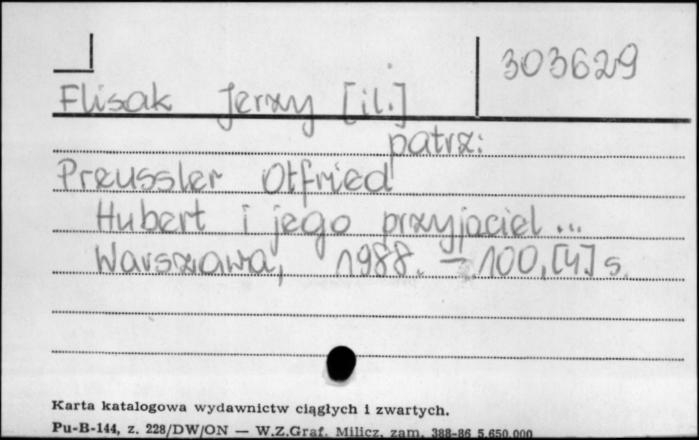 303629
Flisak Jerzy [il.]
patrz:
Preussler Otfried
Hubert i jego przyjaciel...
Warszawa, 1988. – 100, [4] s.
Karta katalogowa wydawnictw ciągłych i zwartych.
Pu-B-144, z. 228/DW/ON — W.Z.Graf. Milicz, zam. 388-86 5.650.000